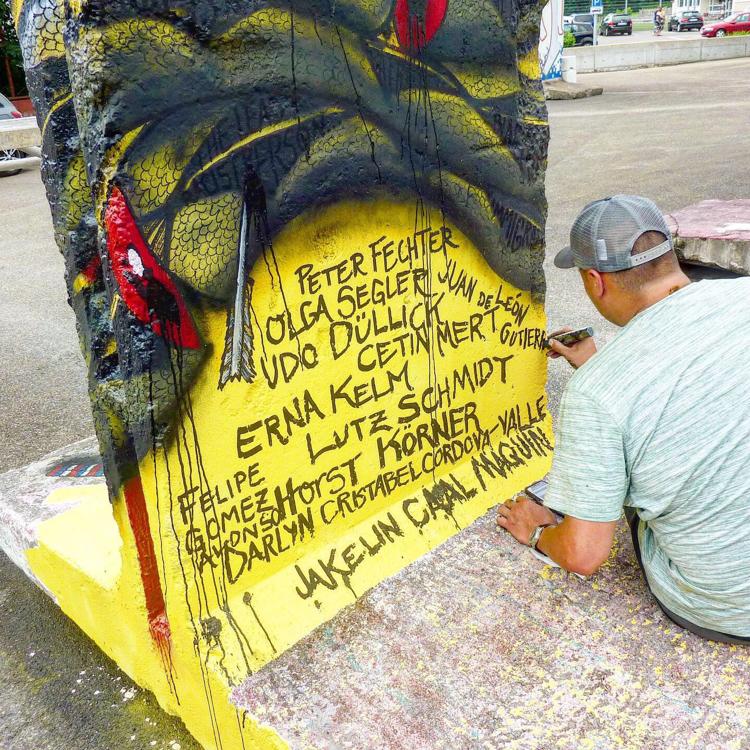 PETER FECHTER
OLGA SEGLER
JUAN DE LEÓN
GUTIERR
UDO DÜLLICK
CETIN MERT
ERNA KELM
LUTZ SCHMIDT
FELIPE
GOMEZ
ALONSO
HORST KÖRNER
DARLYN CRISTABEL CORDOVA-VALLE
JAKELIN CAAL MAQUIN